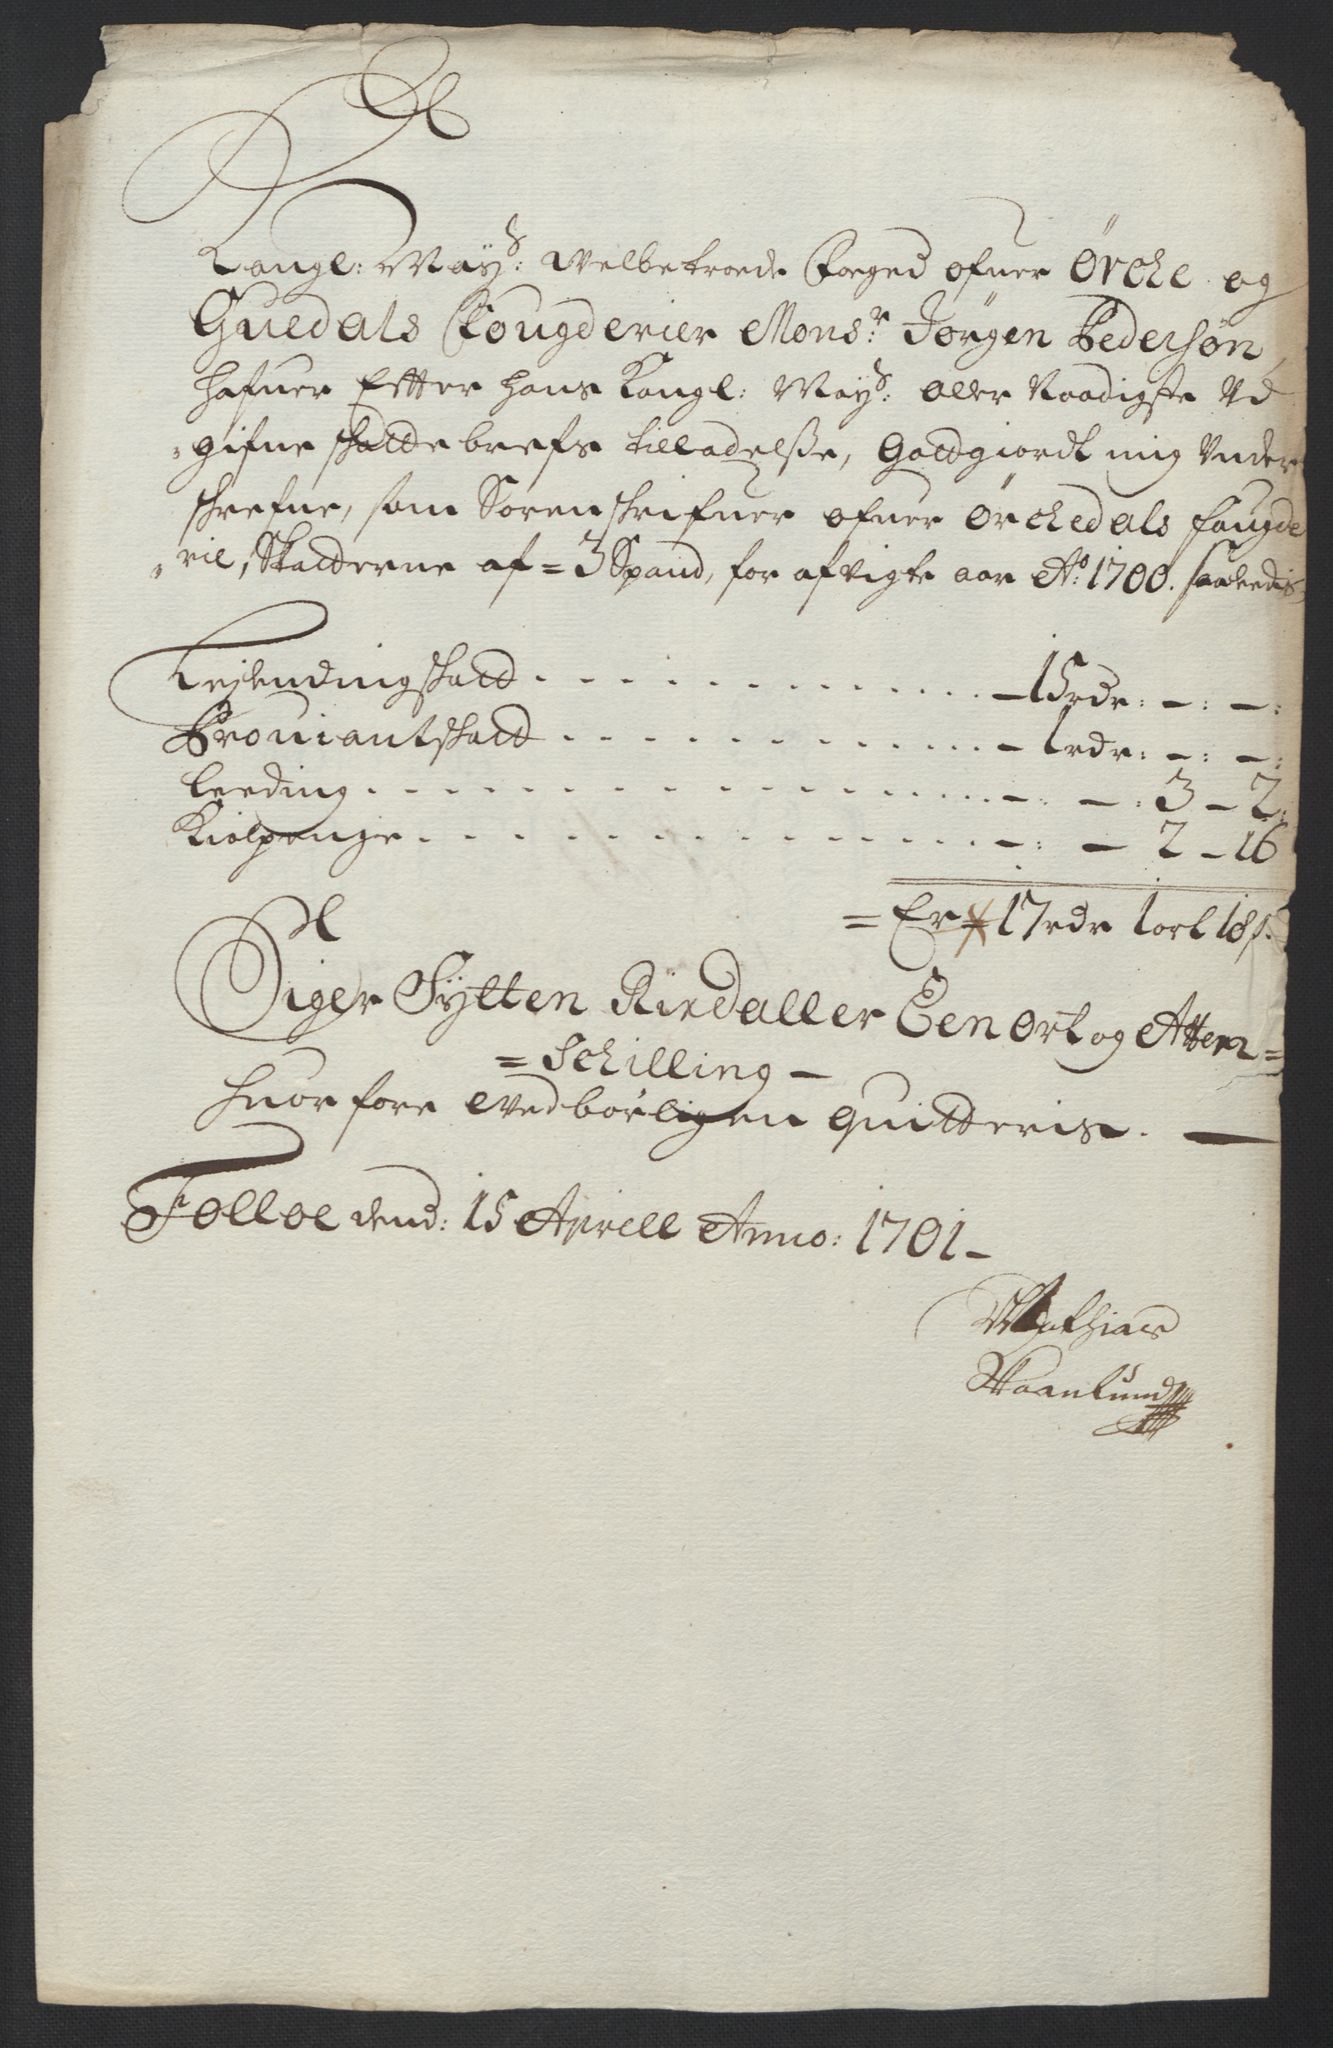 Kongl: Mayts: Welbetroede Foeged ofuer Örche og
Guedals Fougderier Monsr: Jörgen Pedersøn,
hafuer Efter hans Kongl: Mayts: Aller Naadigste Ud
gifne skatte brefs tilladelsse, Gotdgiordt mig Under
skrefne, som Sorenskrifuer ofuer Örchedals fougde
rie, Skatterne af = 3 Spand, for afvigte aar Ao: 1700. saaledis,
Leylendingskatt - 15 rdr: - : - :
Provianttskatt - 1 rdr: - : - :
Leeding - : - : 3 - 2:
Kiolpenge - : - 2 - 16
= Er 17 rdr 1 ort 18 s.
Siger Sytten Rixdaller Een Ort og Atten =
= Schilling -
huorfore Wedbörligen quitteris. -
Folloe dend: 15 Aprill Anno: 1701 -
Mathias
Skaanlund